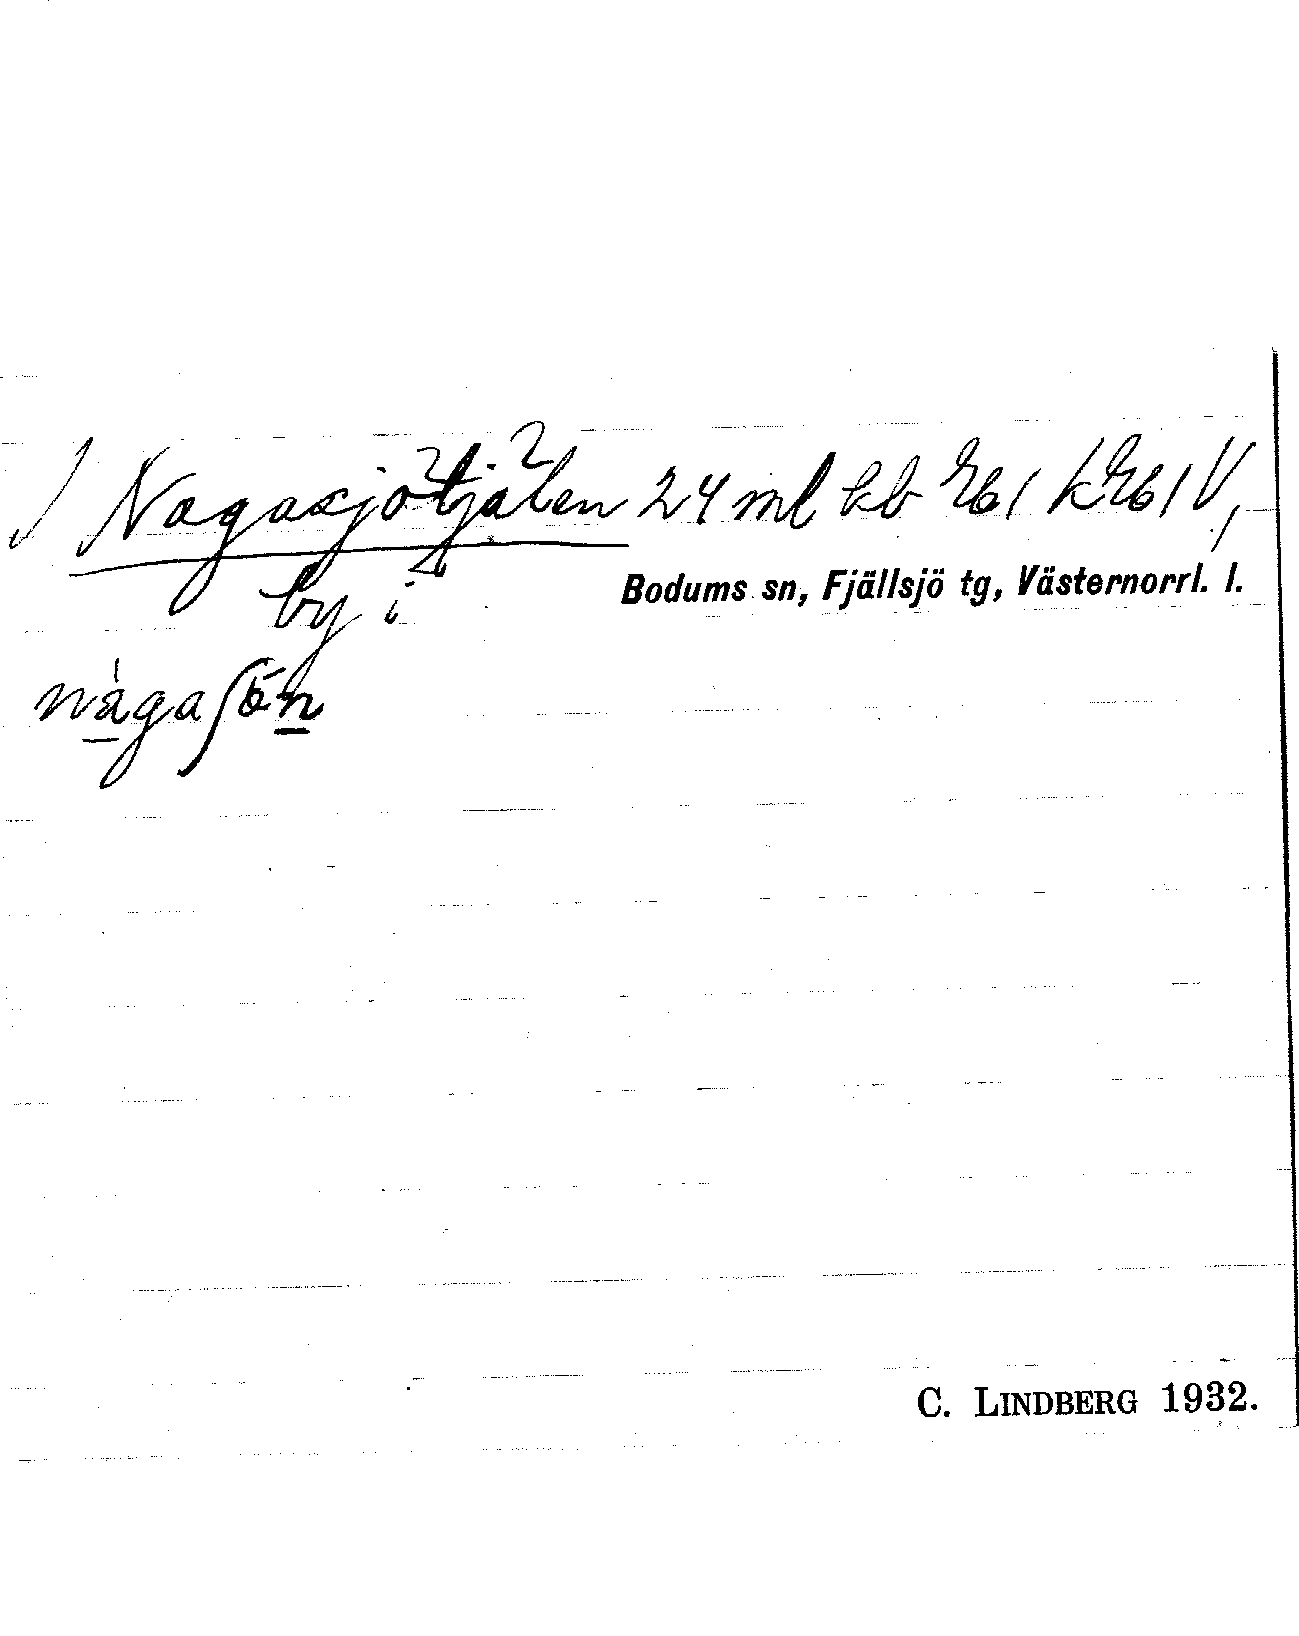 Nagasjötjälen 24 ml kb
by i Bodums sn, Fjällsjö tg, Västernorrl. l.
nàgaʃön
C. LINDBERG 1932.